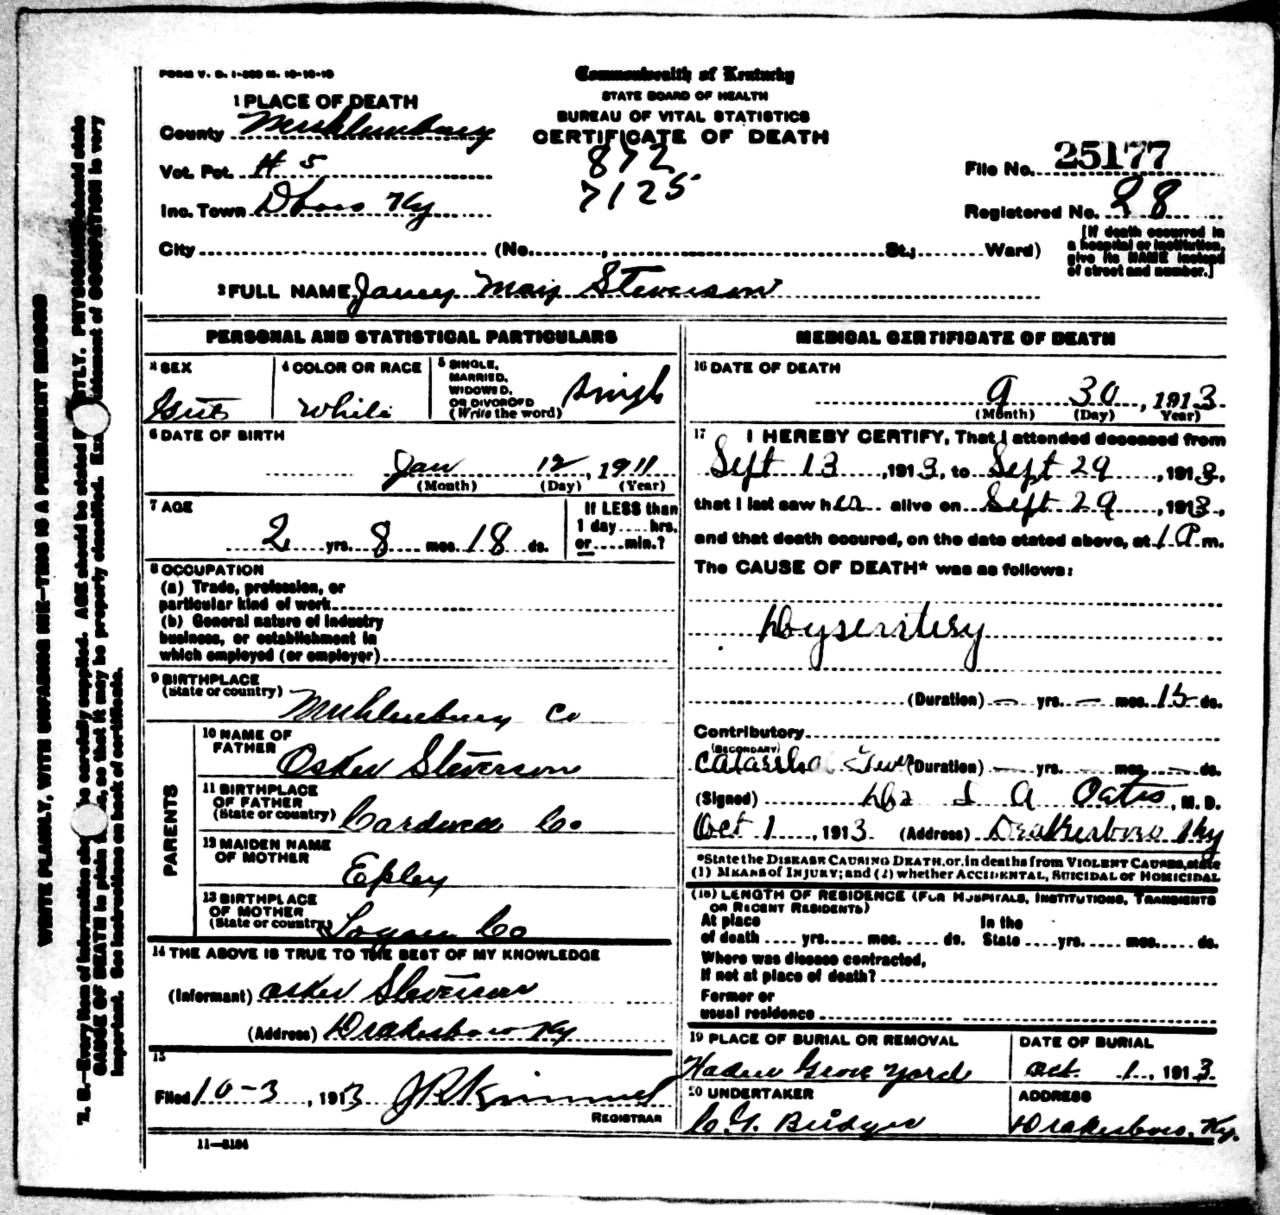 FORM V. D. 1-200 M. 10-10-10
Commonwealth of Kentucky
STATE BOARD OF HEALTH
BUREAU OF VITAL STATISTICS
CERTIFICATE OF DEATH
1 PLACE OF DEATH
County Muhlenburg
Vot. Pct. # 5
872
7125
Inc. Town Ky
File No. 25177
Registered No. 28
City (No. , St.; Ward)
[If death occurred in
a hospital or institution,
give its NAME instead
of street and number.]
2 FULL NAME Janey May Steverson
PERSONAL AND STATISTICAL PARTICULARS
3 SEX
4 COLOR OR RACE White
5 SINGLE,
MARRIED,
WIDOWED,
OR DIVORCED
(Write the word) Single
6 DATE OF BIRTH
Jan 12, 1911
(Month) (Day) (Year)
7 AGE
2 yrs. 8 mos. 18 ds.
If LESS than
1 day ..... hrs.
or ..... min.?
8 OCCUPATION
(a) Trade, profession, or
particular kind of work
(b) General nature of industry
business, or establishment in
which employed (or employer)
9 BIRTHPLACE
(State or country) Muhlenburg Co
PARENTS
10 NAME OF
FATHER Osker Steverson
11 BIRTHPLACE
OF FATHER
(State or country) Cardwell Co
12 MAIDEN NAME
OF MOTHER Epley
13 BIRTHPLACE
OF MOTHER
(State or country) Logan Co
14 THE ABOVE IS TRUE TO THE BEST OF MY KNOWLEDGE
(Informant) Osker Steverson
(Address) Drakesboro Ky
15
Filed 10-3, 1913 J R Kimmel
REGISTRAR
11-3184
MEDICAL CERTIFICATE OF DEATH
16 DATE OF DEATH
9 30, 1913
(Month) (Day) Year)
17 I HEREBY CERTIFY, That I attended deceased from
Sept 13, 1913, to Sept 29, 1913,
that I last saw her alive on Sept 29, 1913,
and that death occured, on the date stated above, at 1 P. m.
The CAUSE OF DEATH* was as follows:
Dysentery
(Duration) — yrs. — mos. 15 ds.
Contributory
(SECONDARY)
Catarrhal Fever (Duration) — yrs. — mos. — ds.
(Signed) Oates, M. D.
Oct 1, 1913 (Address) Drakesboro Ky
*State the DISEASE CAUSING DEATH, or, in deaths from VIOLENT CAUSES, state
(1) MEANS of INJURY; and (2) whether ACCIDENTAL, SUICIDAL or HOMICIDAL
(18) LENGTH OF RESIDENCE (FOR HOSPITALS, INSTITUTIONS, TRANSIENTS
OR RECENT RESIDENTS)
At place In the
of death .... yrs. .... mos. .... ds. State .... yrs. .... mos. .... ds.
Where was disease contracted,
If not at place of death?
Former or
usual residence
19 PLACE OF BURIAL OR REMOVAL DATE OF BURIAL
Grove Yard Oct. 1, 1913
20 UNDERTAKER ADDRESS
C. G. Bridges Drakesboro, Ky.
WRITE PLAINLY, WITH UNFADING INK—THIS IS A PERMANENT RECORD